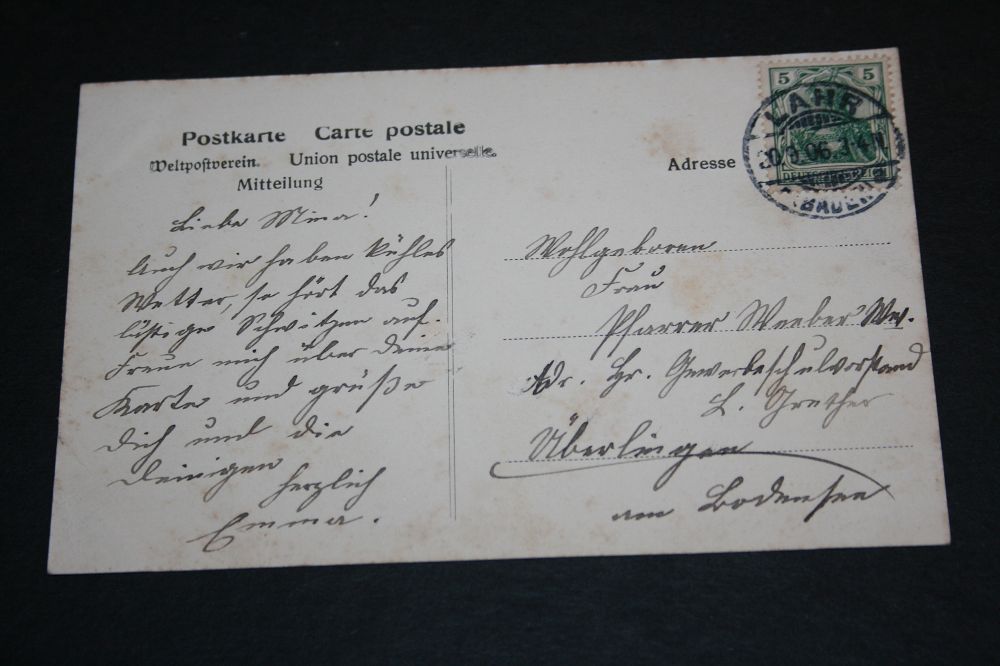 Postkarte Carte postale
Weltpostverein. Union postale universelle.
Mitteilung
Liebe Mina!
Auch wir haben kühles
Wetter, so hört das
lästige Schwitzen auf.
Freue mich über deine
Karte und grüße
dich und die
deinigen
herzlich
Emma.
5 5
LAHR
DEUTSCHES REICH
(BADEN)
Adresse
Wohlgeboren
Frau
Pfarrer Weeber Wwe.
Adr. Hr. Gewerbeschulvorstand
L. Grether
Überlingen
am Bodensee